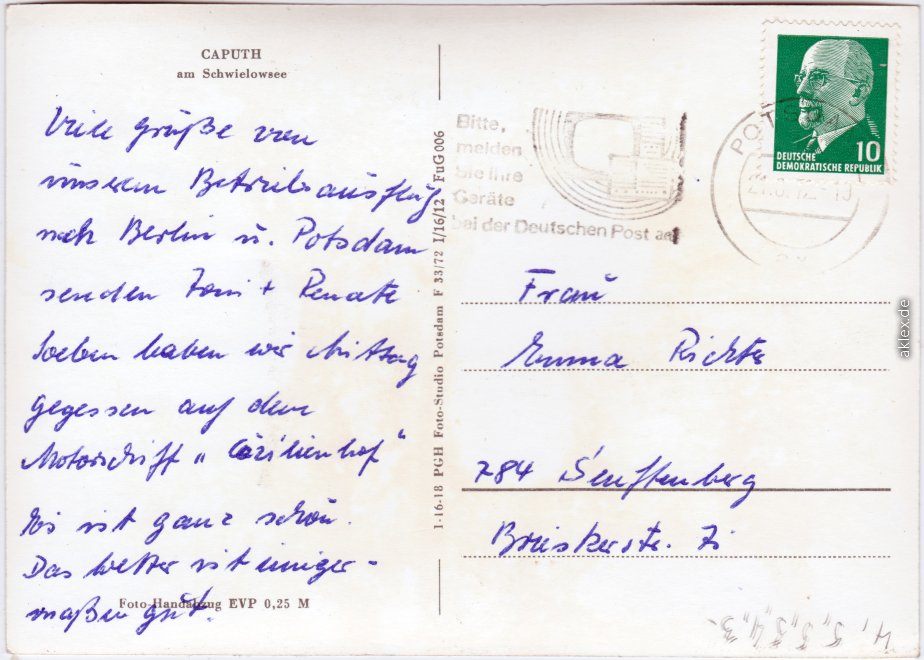 CAPUTH
am Schwielowsee
Viele Grüße von
unserem Betriebsausflug
nach Berlin u. Potsdam
senden Toni + Renate
Soeben haben wir Mittag
gegessen auf dem
Motorschiff „Cäzilienhof"
Es ist ganz schön.
Das Wetter ist einiger-
maßen gut.
Foto-Handabzug EVP 0,25 M
1-16-18 PGH Foto-Studio Potsdam F 33/72 I/16/12 FuG 006
Bitte,
melden
Sie Ihre
Geräte
bei der Deutschen Post an
POTSDAM
10
DEUTSCHE
DEMOKRATISCHE REPUBLIK
Frau
Emma Richter
784 Senftenberg
Brieskerstr.
aklex.de